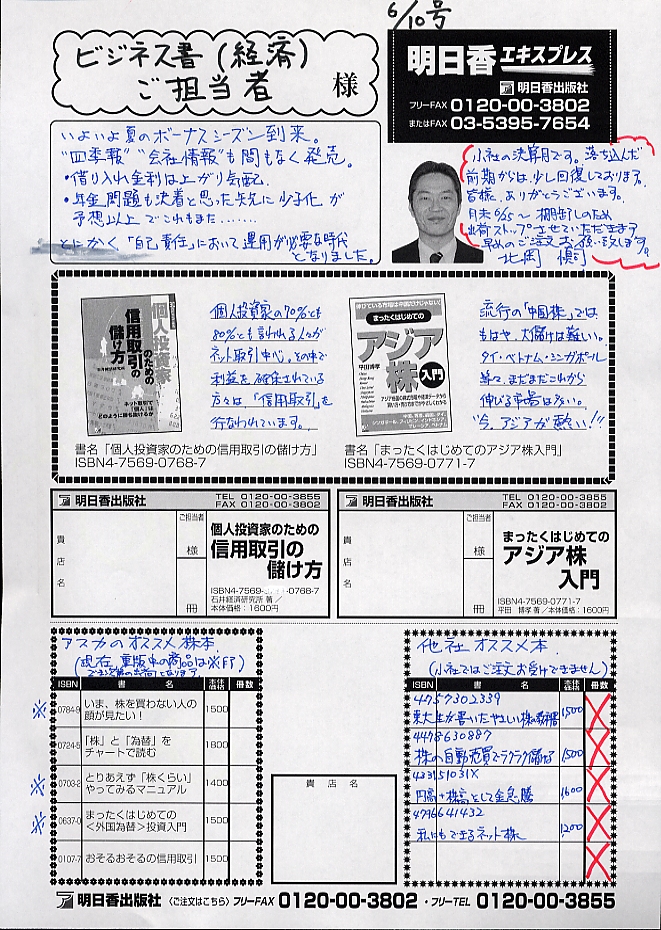 6/10号
ビジネス書(経済)
ご担当者
様
明日香エキスプレス
明日香出版社
フリーFAX 0120-00-3802
またはFAX 03-5395-7654
いよいよ夏のボーナスシーズン到来。
"四季報" "会社情報"も間もなく発売。
・借り入れ金利は上がり気配
・年金問題も決着と思った矢先に少子化が
予想以上でこれもまた……
とにかく「自己責任」において運用が必要な時代
となりました。
小社の決算月です。落ち込んだ
前期からは、少し回復しております。
皆様、ありがとうございます。
月末6/25〜棚卸しのため
出荷ストップさせていただきます
早めのご注文お願い致します。
北岡 慎司
個人投資家のための信用取引の儲け方
個人投資家の70%とも
80%とも言われる人々が
ネット取引中心。その中で
利益を確保されている
方々は「信用取引」を
行なわれています。
書名「個人投資家のための信用取引の儲け方」
ISBN4-7569-0768-7
まったくはじめての
アジア株
入門
流行の「中国株」では、
もはや、大儲けは難しい。
タイ・ベトナム・シンガポール
等々、まだまだこれから
伸びる市場は多い。
"今、アジアが熱い!!"
書名「まったくはじめてのアジア株入門」
ISBN4-7569-0771-7
明日香出版社
TEL 0120-00-3855
FAX 0120-00-3802
貴店名
ご担当者
様
冊
個人投資家のための
信用取引の
儲け方
ISBN4-7569-0768-7
石井経済研究所 著/
本体価格:1600円
明日香出版社
TEL 0120-00-3855
FAX 0120-00-3802
貴店名
ご担当者
様
冊
まったくはじめての
アジア株
入門
ISBN4-7569-0771-7
平田 博孝 著/本体価格:1600円
アスカのオススメ株本
(現在、重版中の商品は※印)
ISBN 書名 本体価格 冊数
※ 0784-9 いま、株を買わない人の顔が見たい! 1500
0724-5 「株」と「為替」をチャートで読む 1800
※ 0703-2 とりあえず「株くらい」やってみるマニュアル 1400
※ 0637-0 まったくはじめての<外国為替>投資入門 1500
0107-7 おそるおそるの信用取引 1500
貴店名
他社オススメ本
(小社ではご注文お受けできません)
ISBN 書名 本体価格 冊数
4757302339
東大生が書いたやさしい株の教科書 1,500
4478630887
株の自動売買でラクラク儲ける 1500
423151031X
円高+株高として金急騰 1,600
4796641432
私にもできるネット株 1,200
明日香出版社 〈ご注文はこちら〉フリーFAX 0120-00-3802 ・フリーTEL 0120-00-3855